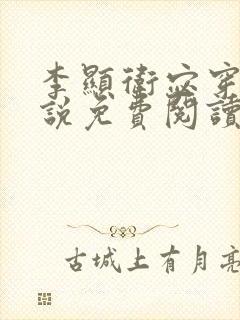 李顯衛宓穿
說免費閱讀
古城上有月亮